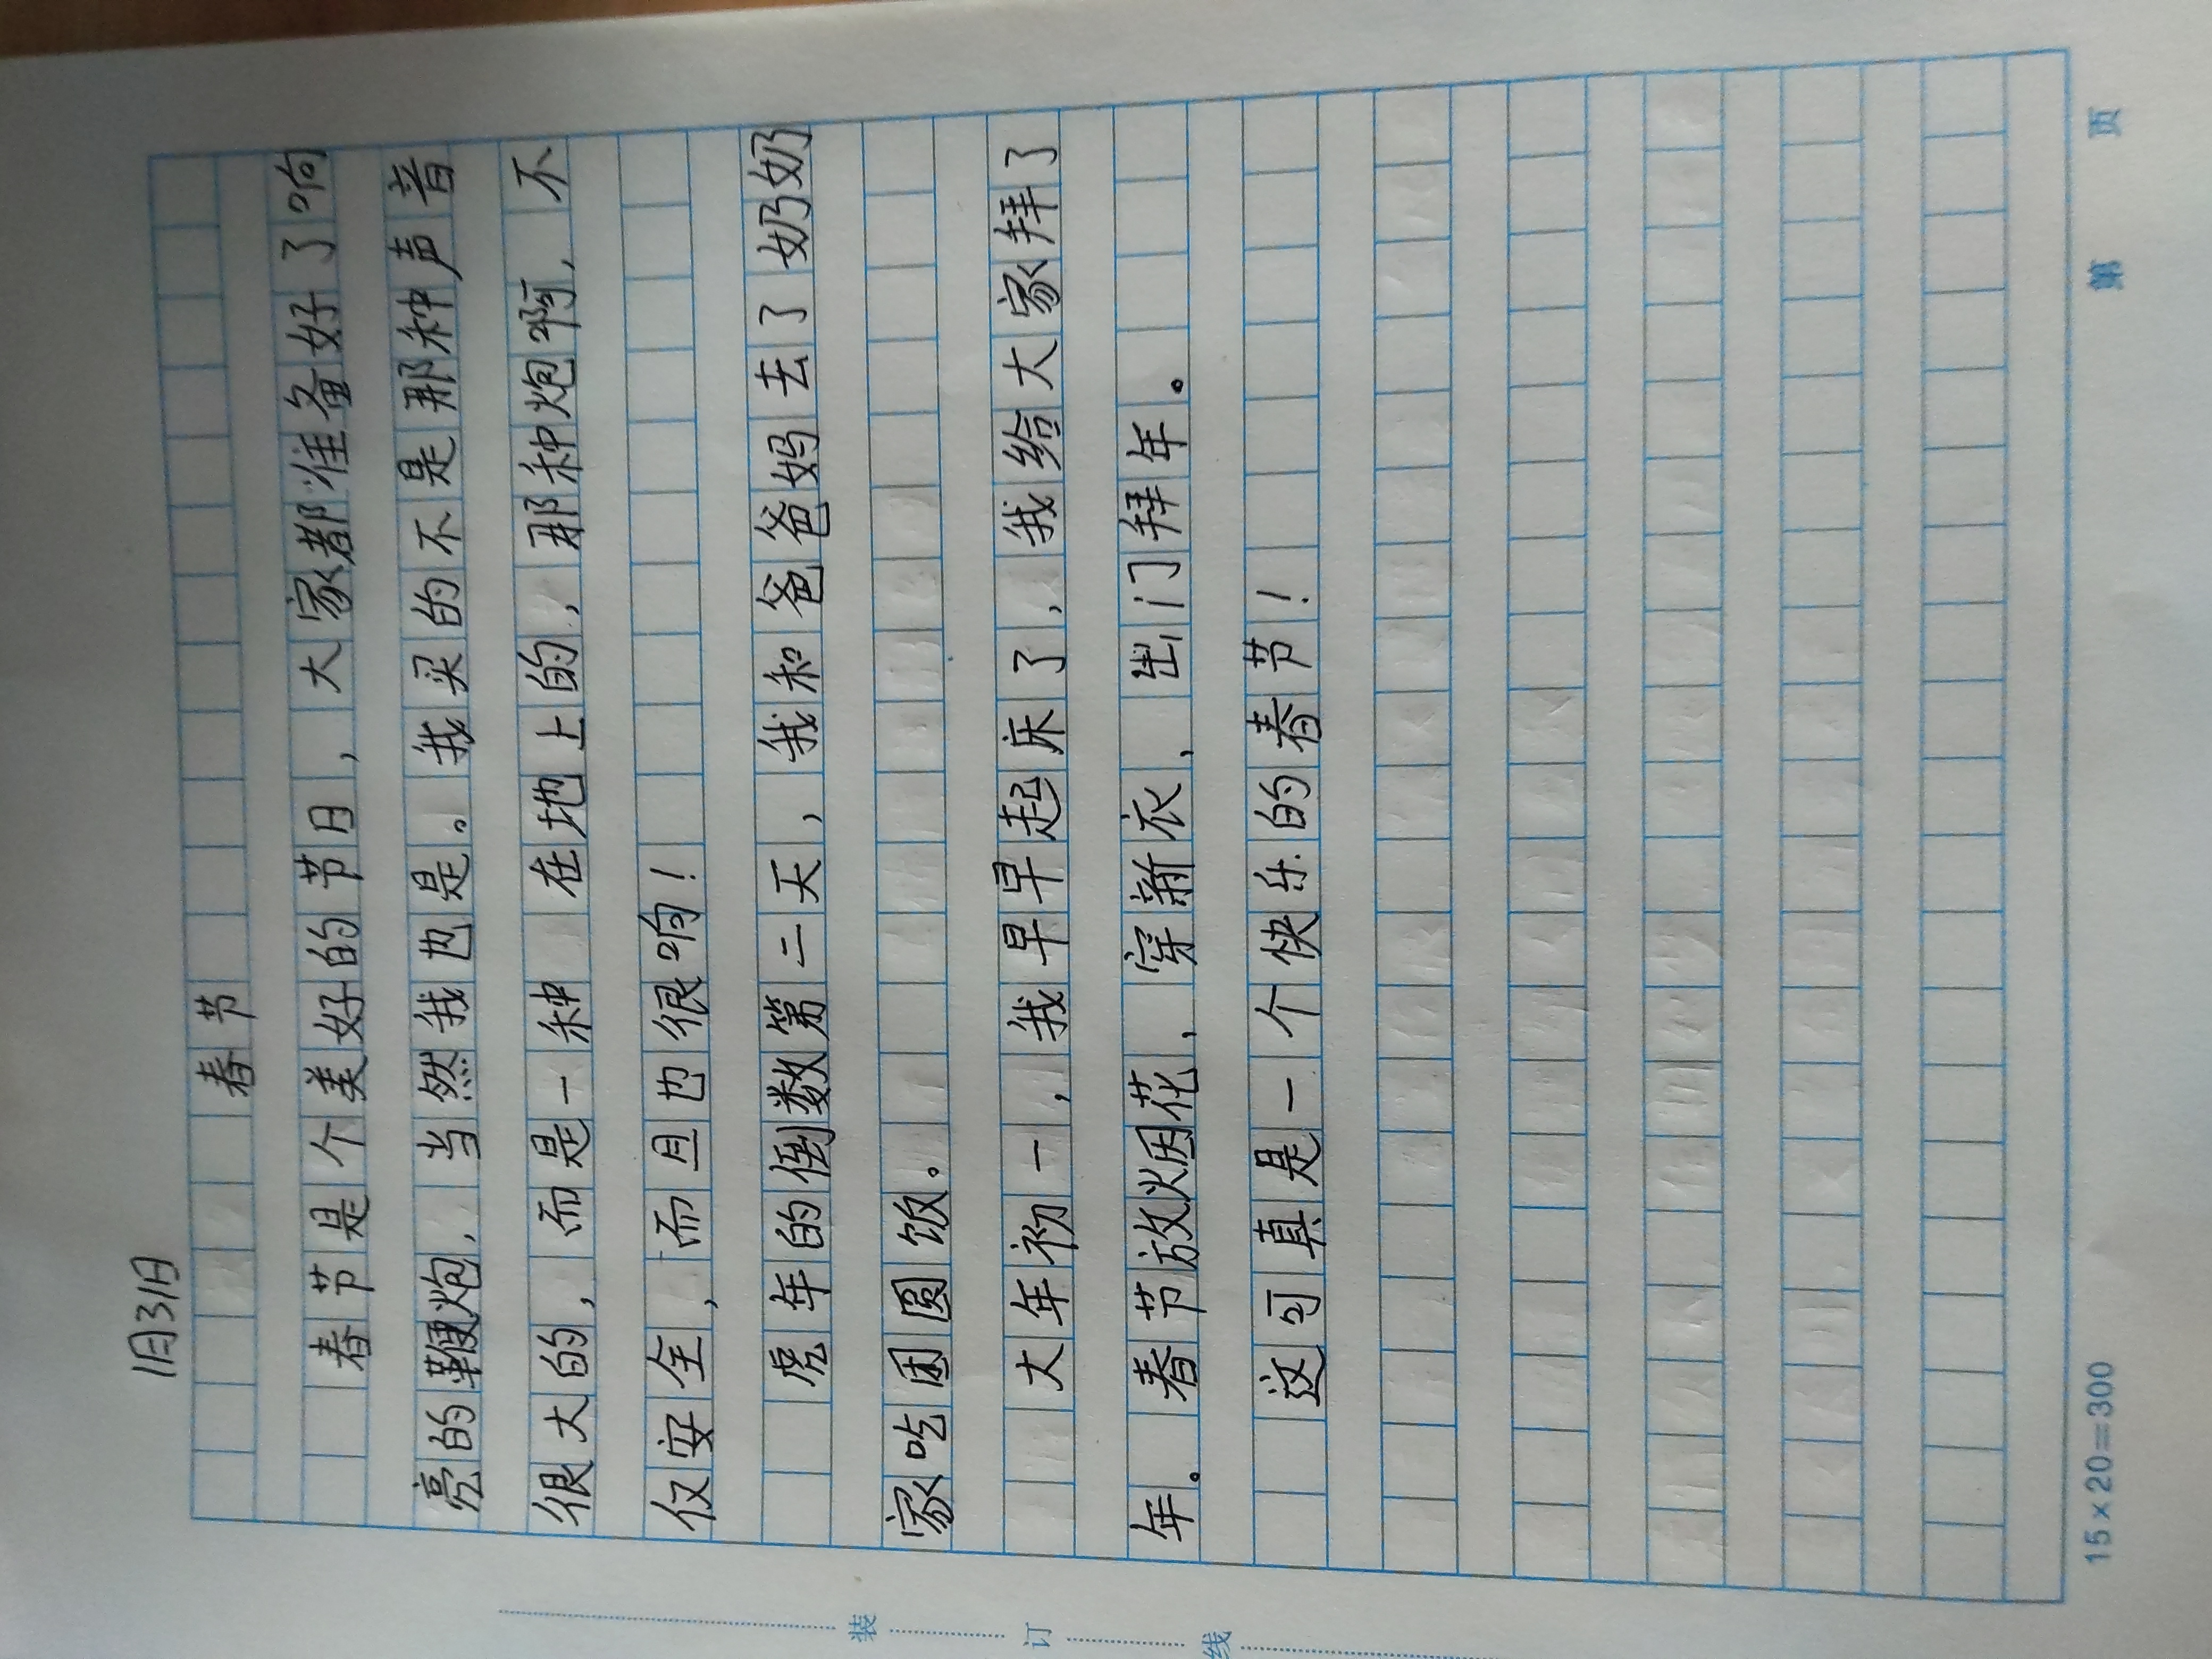 1月31日
春节
春节是个美好的节日，大家都准备好了响
亮的鞭炮，当然我也是。我买的不是那种声音
很大的，而是一种在地上的，那种炮啊，不
仅安全，而且也很响！
虎年的倒数第二天，我和爸爸妈去了奶奶
家吃团圆饭。
大年初一，我早早起床了，我给大家拜了
年。春节放烟花、穿新衣、出门拜年。
这可真是一个快乐的春节！
装订线
15×20=300 第 页